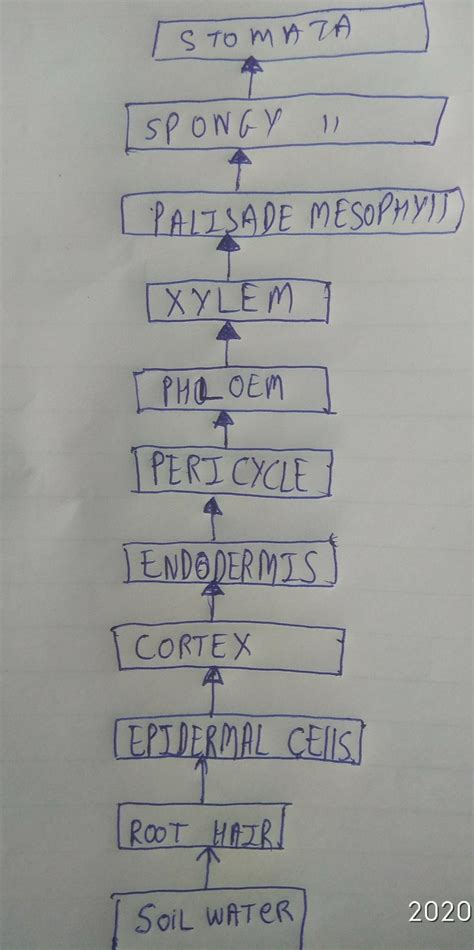 STOMATA
SPONGY 11
PALISADE MESOPHYll
XYLEM
PHLOEM
PERICYCLE
ENDODERMIS
CORTEX
EPIDERMAL CEllS
ROOT HAIR
SOIL WATER
2020